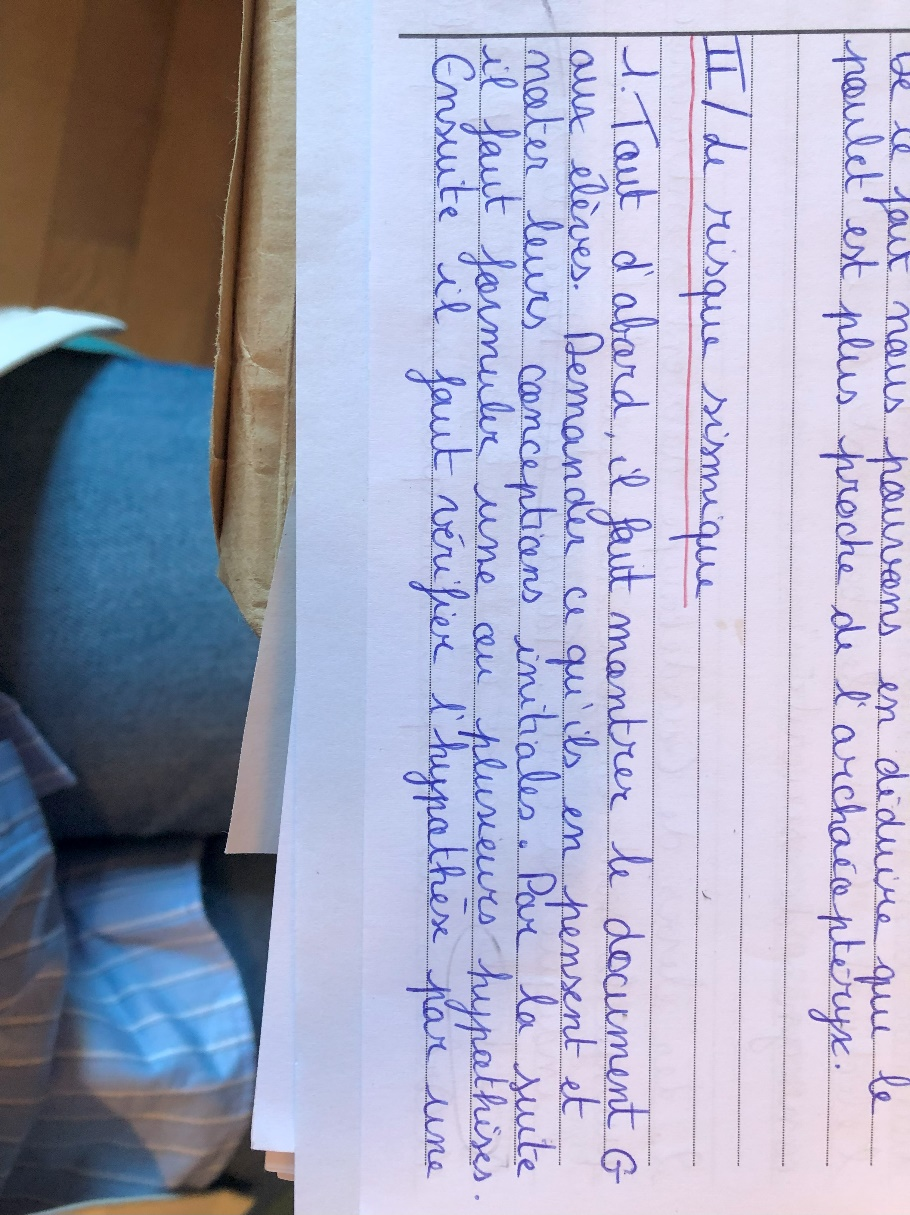 De ce fait nous pouvons en déduire que le
poulet est plus proche de l'archaéoptéryx.
II/ Le risque sismique
1. Tout d'abord, il faut montrer le document G
aux élèves. Demander ce qu'ils en pensent et
noter leurs conceptions initiales. Par la suite
il faut formuler une ou plusieurs hypothèses.
Ensuite il faut vérifier l'hypothèse par une